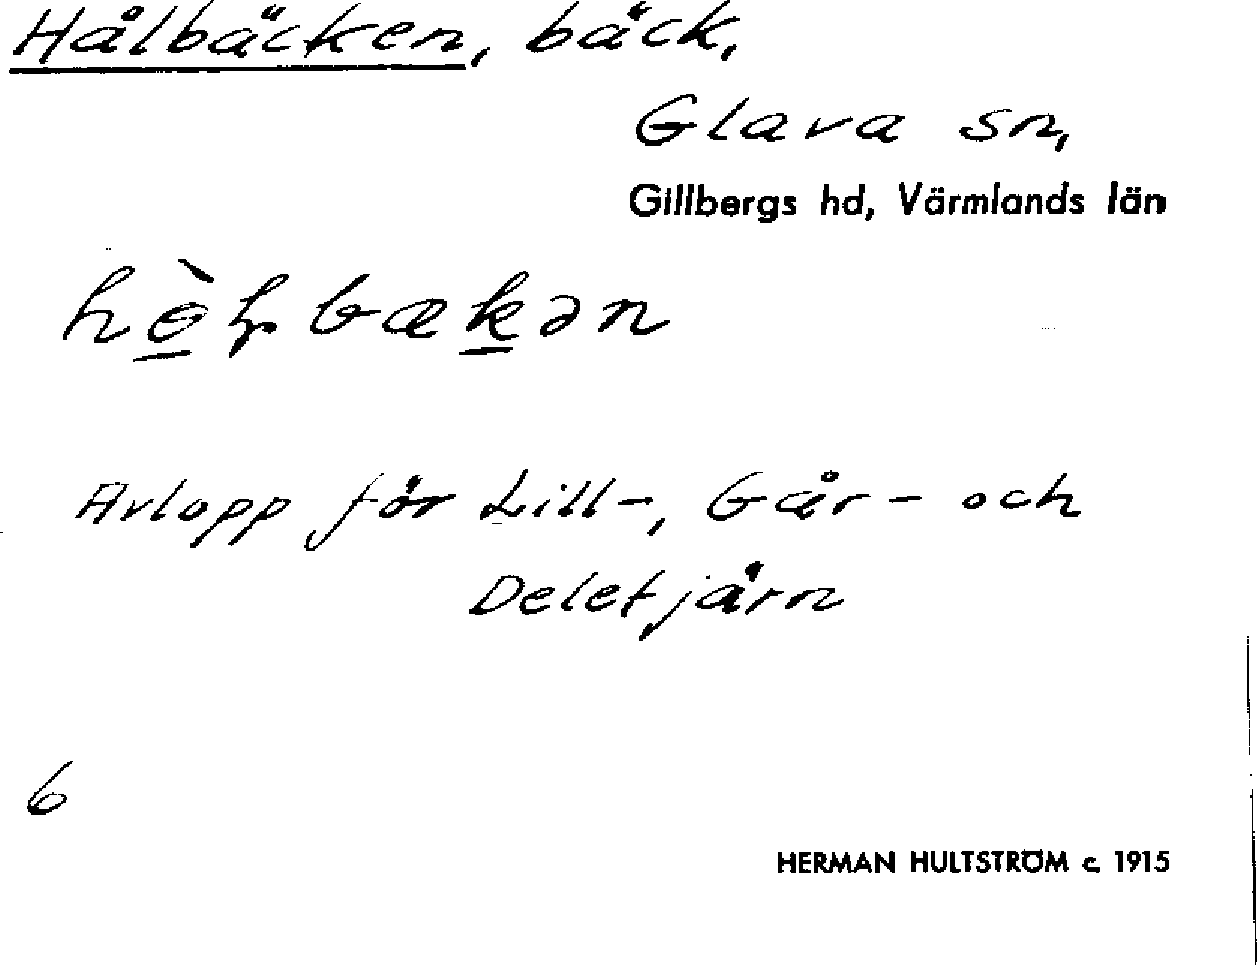 Hålbäcken, bäck,
Glava sn,
Gillbergs hd, Värmlands län
Avlopp för Lill-, Går- och
Deletjärn
6
HERMAN HULTSTRÖM c. 1915